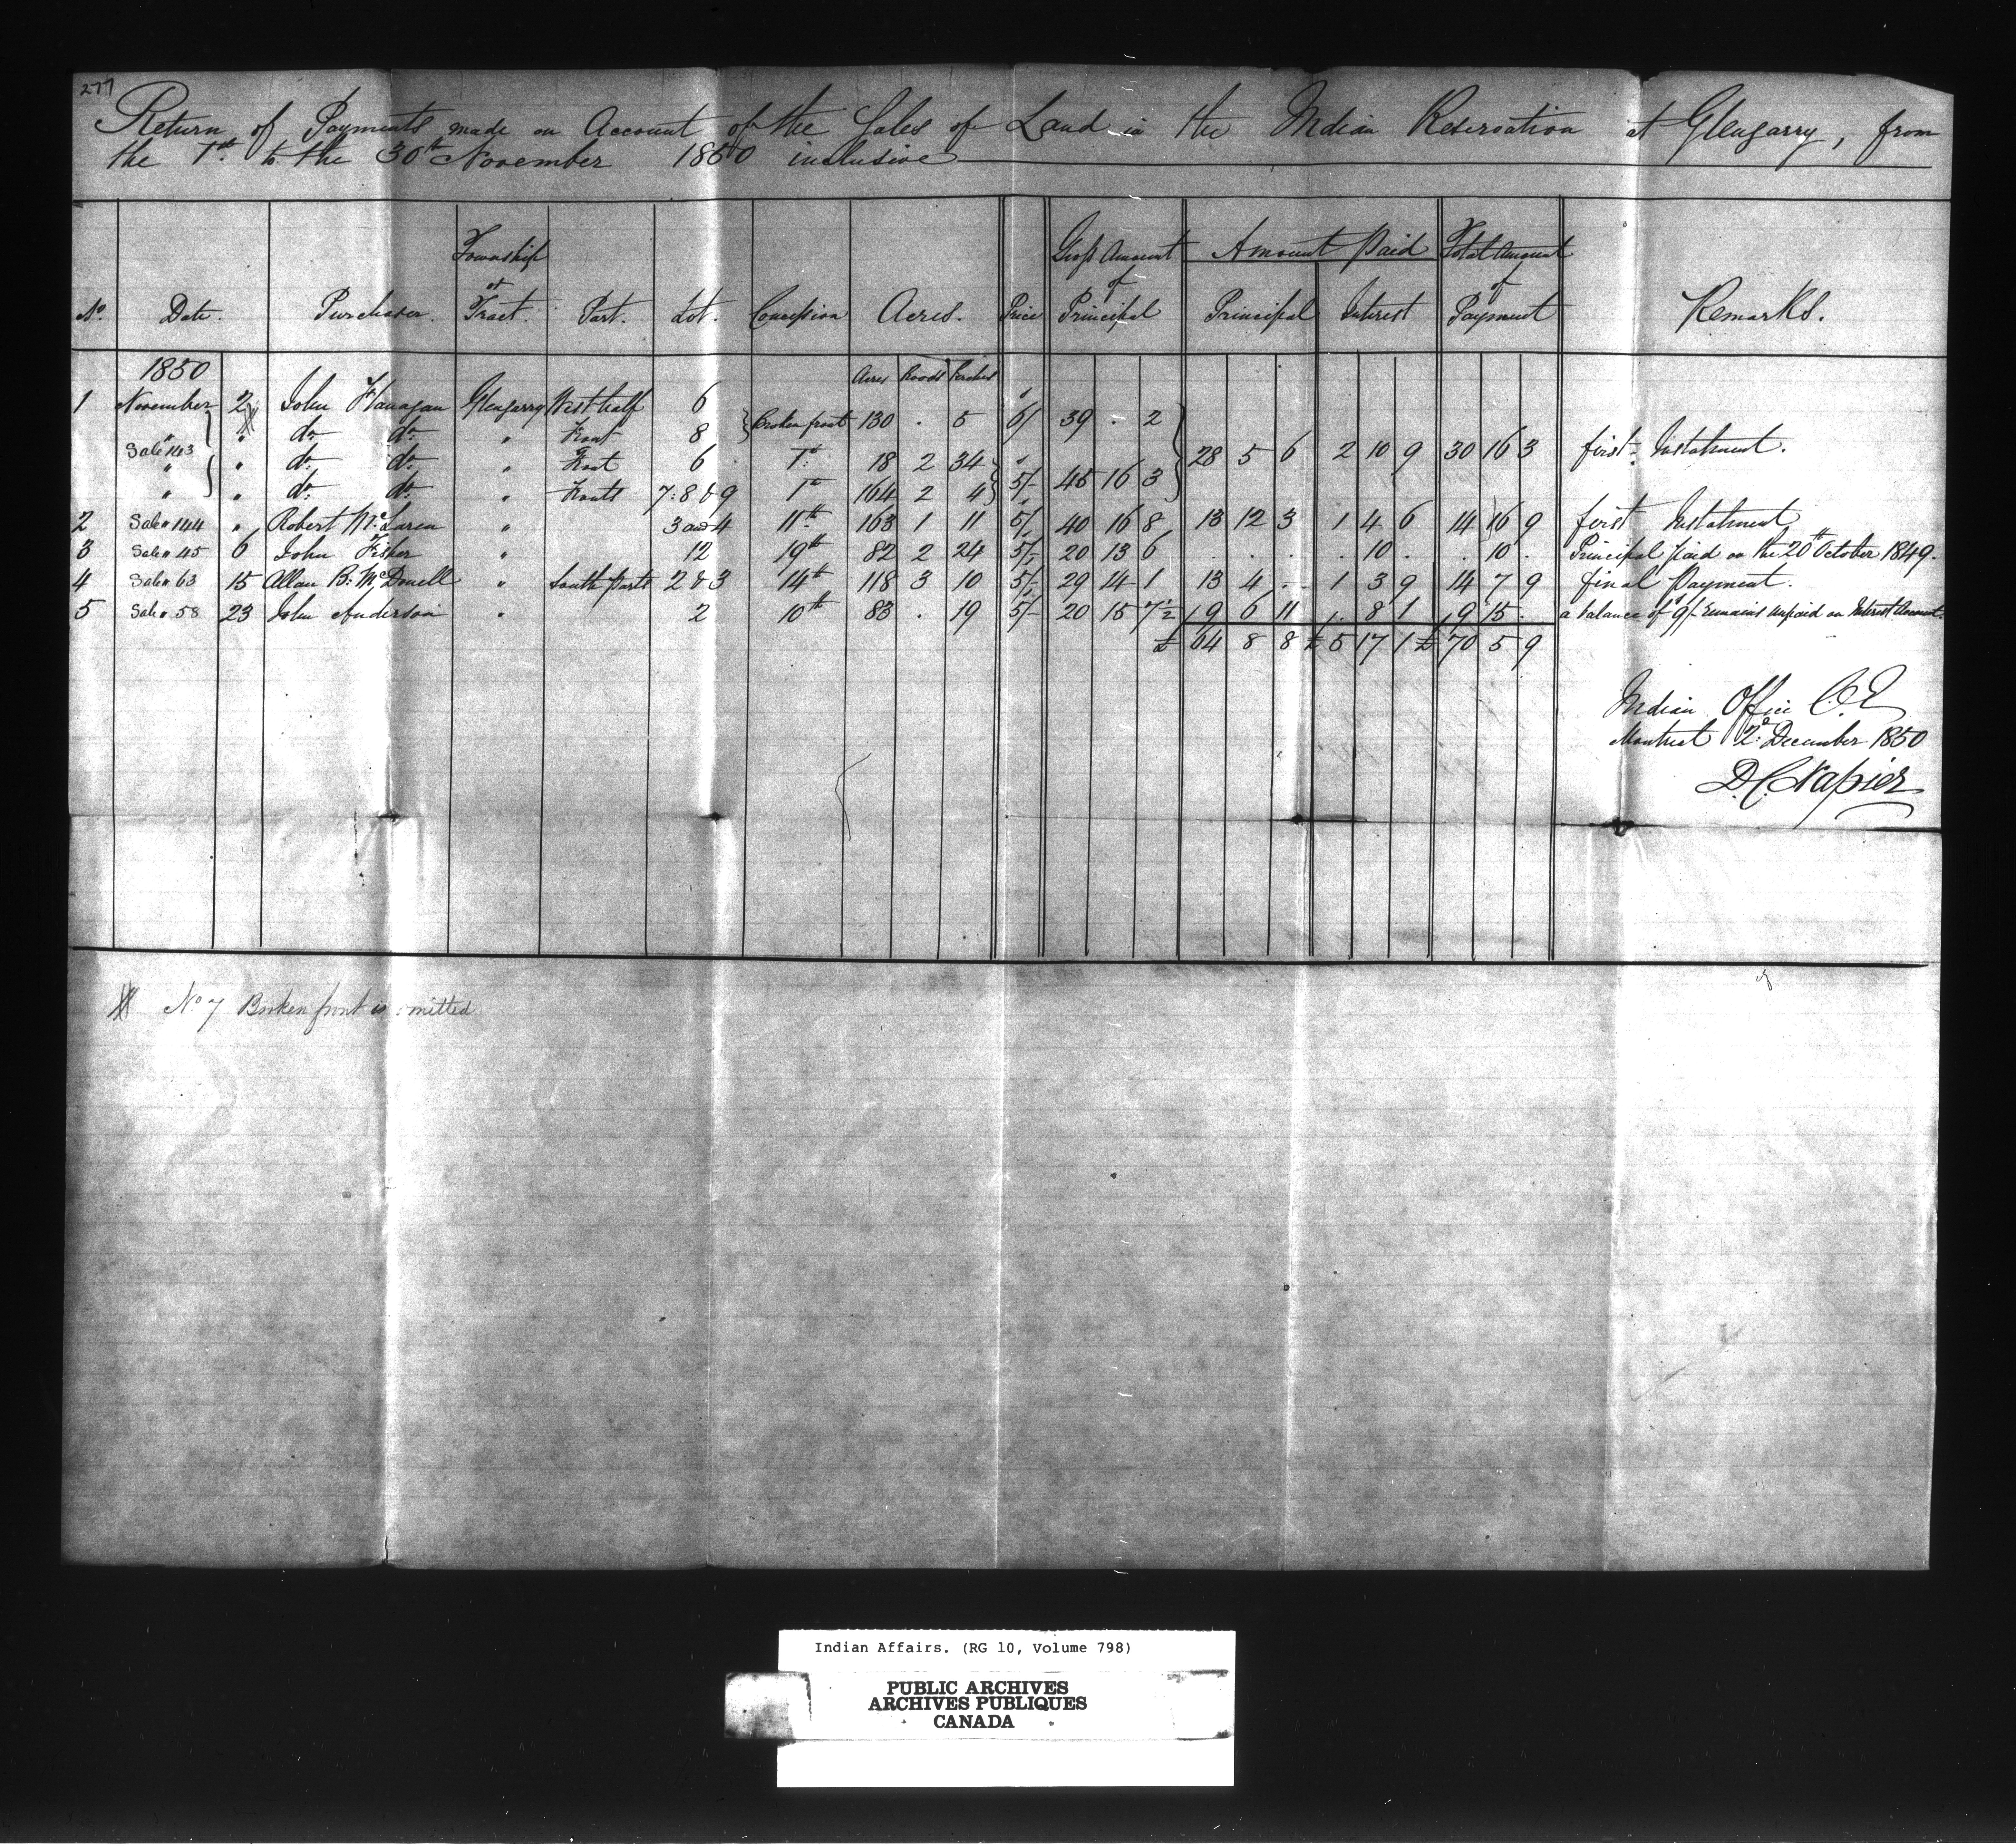 277
Return of Payments made on Account of the Sales of Land in the Indian Reservation at Glengarry, from
the 1st to the 30th November 1850 inclusive
No. Date. Purchaser. Township or Tract. Part. Lot. Concession Acres. Price Gross Amount of Principal Amount Paid Principal Interest Total Amount of Payment Remarks.
1850 Acres Roods Perches
1 November 2 John Flanagan Glengarry West half 6 } Broken front 130 . 5 6/ 39 . 2
" " do. do. " Front 8
Sale 143 28 5 6 2 10 9 30 16 3 first Instalment.
" " do. do. " Front 6 1st 18 2 34 } 5/- 45 16 3
" " do. do. " Fronts 7. 8 & 9 1st 164 2 4
2 Sale " 144 " Robert McLaren " 3 and 4 11th 163 1 11 5/- 40 16 8 13 12 3 1 4 6 14 16 9 first Instalment
3 Sale " 45 6 John Fisher " 12 19th 82 2 24 5/- 20 13 6 . . . . 10 . . 10 . Principal paid on the 20th October 1849.
4 Sale " 63 15 Allan B. McDonell " South Parts 2 & 3 14th 118 3 10 5/- 29 14 1 13 4 - 1 3 9 14 7 9 final Payment.
5 Sale " 58 23 John Anderson " 2 10th 83 . 19 5/- 20 15 7½ 9 6 11 . 8 1 9 15 . a balance of 9/- remains unpaid on Interest Account.
£ 64 8 8 £ 5 17 1 £ 70 5 9
Indian Office C.E
Montreal 2d December 1850
D. C. Napier
No 7 Broken front is omitted
Indian Affairs. (RG 10, Volume 798)
PUBLIC ARCHIVES
ARCHIVES PUBLIQUES
CANADA